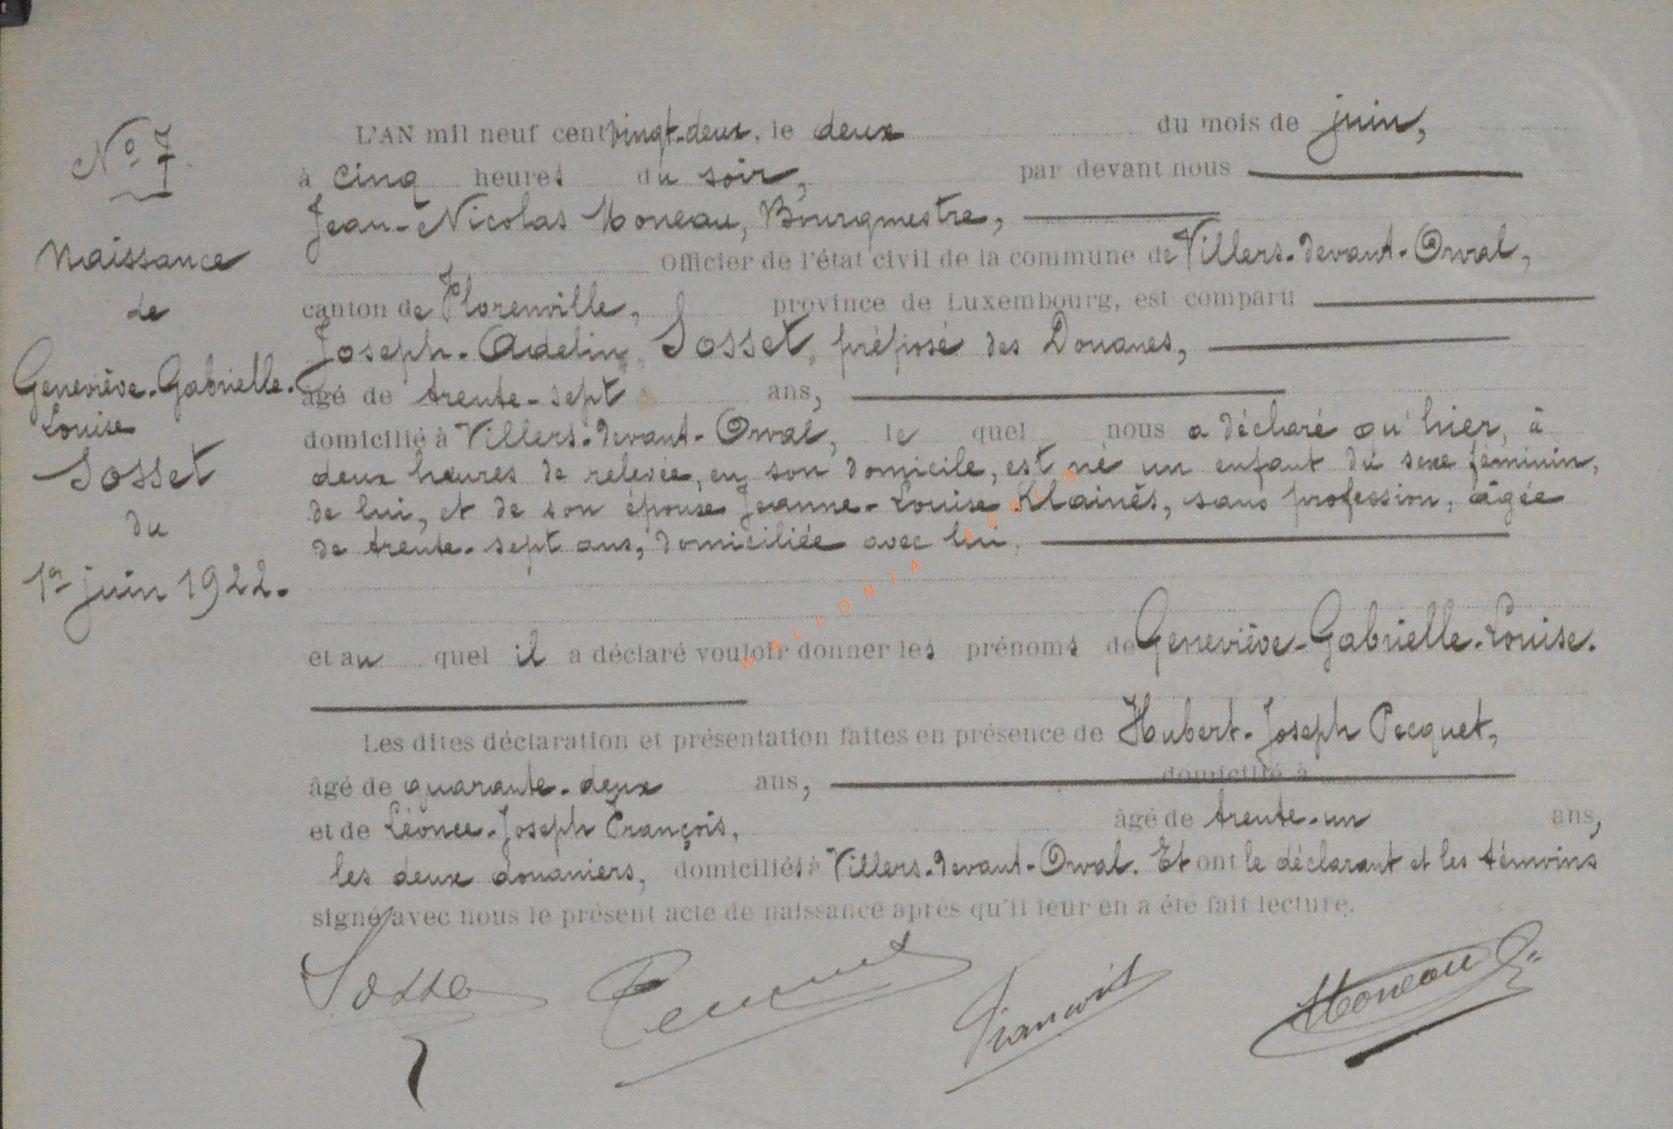 N° 7
Naissance
de
Geneviève-Gabrielle-
Louise
Sosset
du
1er juin 1922.
L'AN mil neuf cent vingt-deux, le deux du mois de juin,
à cinq heures du soir, par devant nous
Jean-Nicolas Honeau, Bourgmestre,
Officier de l'état civil de la commune de Villers-devant-Orval,
canton de Florenville, province de Luxembourg, est comparu
Joseph-Adelin Sosset, préposé des Douanes,
âgé de trente-sept ans,
domicilié à Villers-devant-Orval, le quel nous a déclaré qu'hier, à
deux heures de relevée, en son domicile, est né un enfant du sexe féminin,
de lui, et de son épouse Jeanne-Louise Klainès, sans profession, âgée
de trente-sept ans, domiciliée avec lui.
et au quel il a déclaré vouloir donner les prénoms de Geneviève-Gabrielle-Louise.
Les dites déclaration et présentation faites en présence de Hubert-Joseph Pecquet,
âgé de quarante-deux ans, domicilié à
et de Léonce-Joseph François, âgé de trente-un ans,
les deux douaniers, domiciliés à Villers-devant-Orval. Et ont le déclarant et les témoins
signé avec nous le présent acte de naissance après qu'il leur en a été fait lecture.
Sosset Pecquet François Honeau
WALLONIA ASBL ®